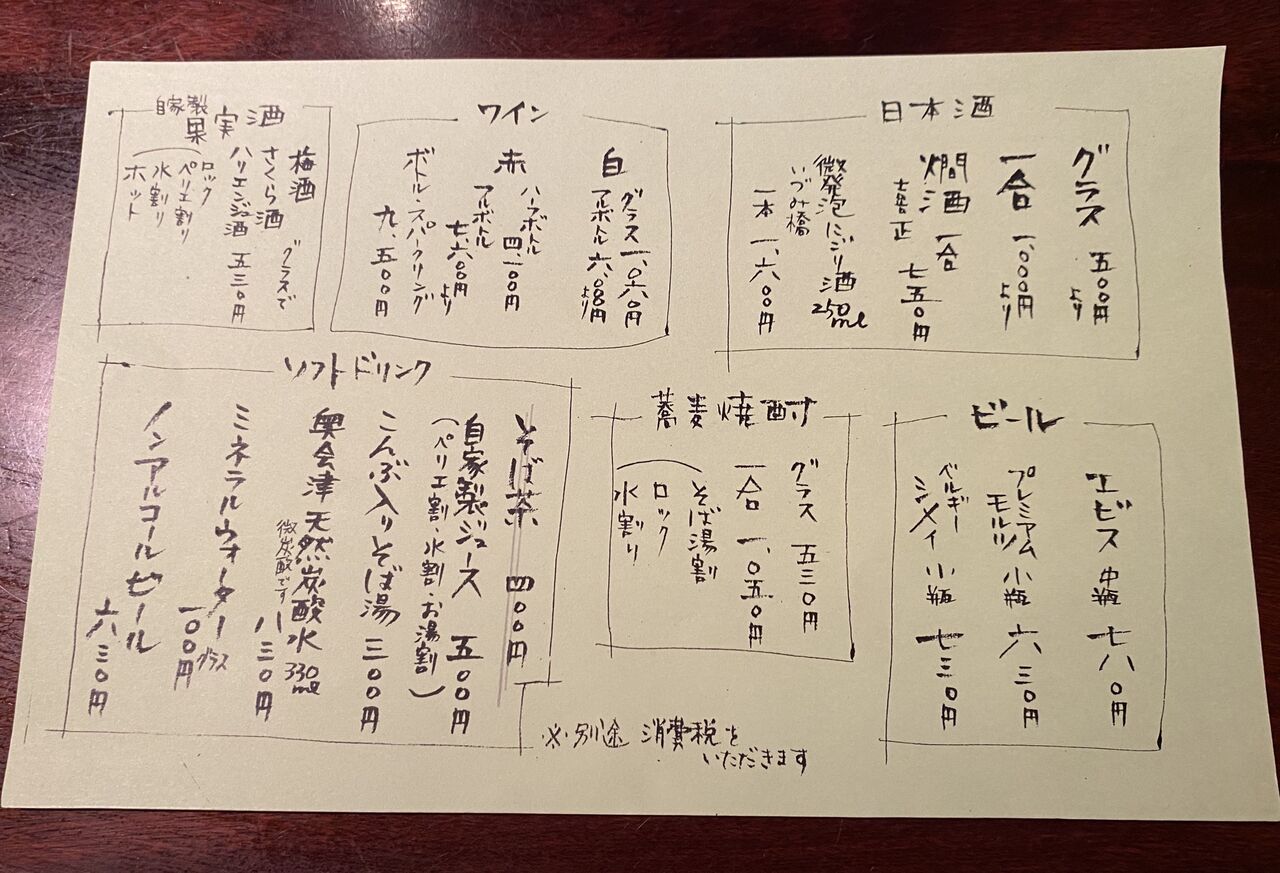 日本酒
グラス 五〇〇円より
一合 一、〇〇〇円より
燗酒 一合
七喜正 七五〇円
微発泡にごり酒 250ml
いづみ橋
一本 一、六〇〇円
ワイン
白
グラス 一、〇六〇円
フルボトル 六、〇〇〇円より
赤
ハーフボトル 四、一〇〇円
フルボトル 七、六〇〇円より
ボトル・スパークリング
九、五〇〇円
自家製果実酒
梅酒
さくら酒 グラスで
ハリエンジュ酒 五三〇円
ロック
ペリエ割り
水割り
ホット
ビール
エビス 中瓶 七八〇円
プレミアムモルツ 小瓶 六三〇円
ベルギーシメイ 小瓶 七三〇円
蕎麦焼酎
グラス 五三〇円
一合 一、〇五〇円
そば湯割
ロック
水割り
ソフトドリンク
そば茶 四〇〇円
自家製ジュース 五〇〇円
(ペリエ割・水割・お湯割)
こんぶ入りそば湯 三〇〇円
奥会津 天然炭酸水 330ml
微炭酸です 八三〇円
ミネラルウォーター グラス
一〇〇円
ノンアルコールビール
六三〇円
※別途 消費税を
いただきます